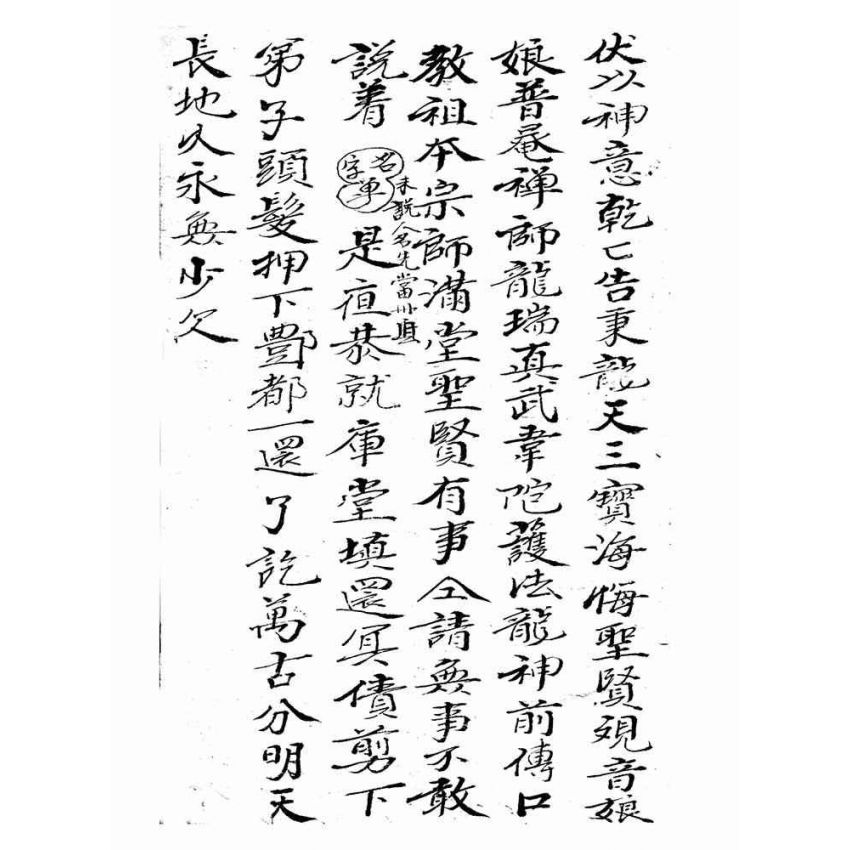 伏以神意乾〻告秉龍天三寶海悔聖賢覌音娘
娘普菴禅師龍瑞真武韋陀護法龍神前傳口
教祖本宗師滿堂聖賢有事仝請無事不敢
說着 名字單 是亱恭就庫堂填還冥債剪下
未說名先當
弟子頭髮押下酆都一還了訖萬古分明天
長地久永無少欠